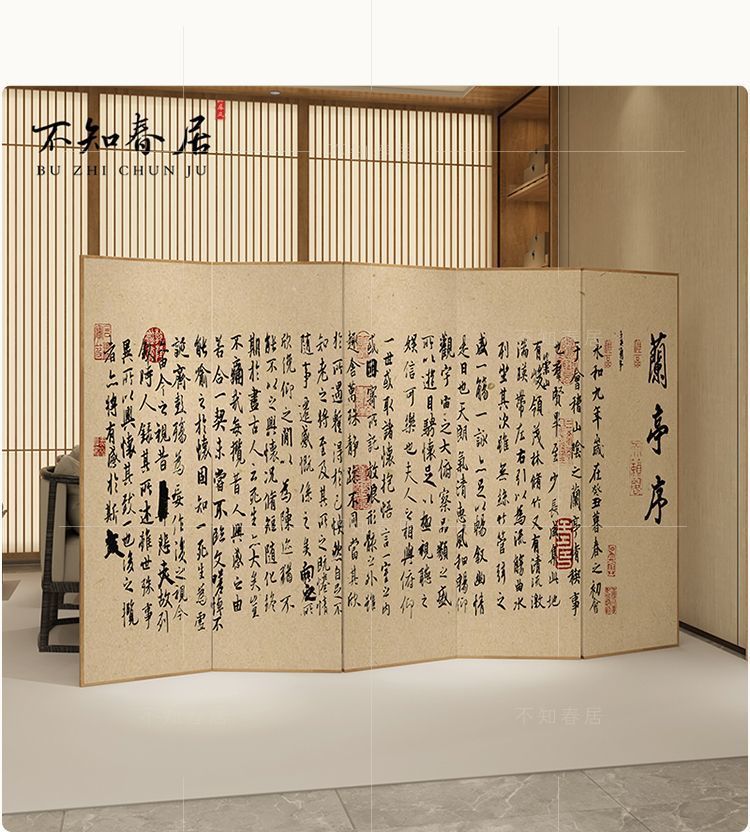 不知春居
BU ZHI CHUN JU
蘭亭序
永和九年歲在癸丑暮春之初會
于會稽山陰之蘭亭脩稧事
也羣賢畢至少長咸集此地
有崇山峻領茂林脩竹又有清流激
湍暎帶左右引以為流觴曲水
列坐其次雖無絲竹管弦之
盛一觴一詠亦足以暢敘幽情
是日也天朗氣清惠風和暢仰
觀宇宙之大俯察品類之盛
所以遊目騁懷足以極視聽之
娛信可樂也夫人之相與俯仰
一世或取諸懷抱悟言一室之內
或因寄所託放浪形骸之外雖
趣舍萬殊靜躁不同當其欣
於所遇暫得於己怏然自足不
知老之將至及其所之既惓情
隨事遷感慨係之矣向之所
欣俛仰之閒以為陳迹猶不
能不以之興懷況脩短隨化終
期於盡古人云死生亦大矣豈
不痛哉每攬昔人興感之由
若合一契未嘗不臨文嗟悼不
能喻之於懷固知一死生為虛
誕齊彭殤為妄作後之視今
亦由今之視昔悲夫故列
敘時人錄其所述雖世殊事
異所以興懷其致一也後之攬
者亦將有感於斯文
不知春居
不知春居